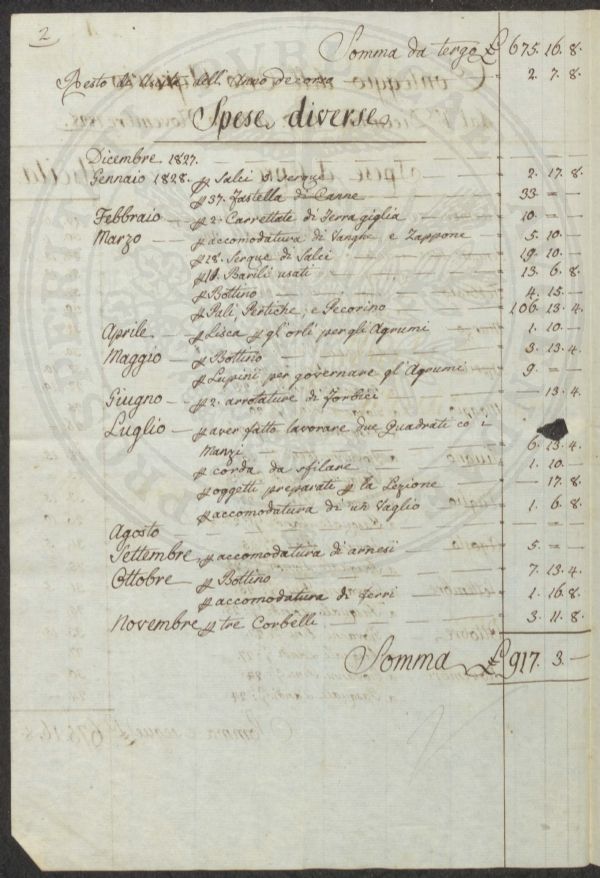 2
Somma da tergo £ 675. 16. 8.
Resto di Uscita dell' Anno decorso 2. 7. 8.
Spese diverse
Dicembre 1827. —
Gennaio 1828. — p Salci 2. 17. 8.
p 37. Fastella di Canne 33 = —
Febbraio — p 2. Carrettate di Terra giglia 10. = —
Marzo — p accomodatura di Vanghe e Zappone 5. 10. —
p 18. Serque di Salci 19. 10. —
p Barili usati 13. 6. 8.
p Bottino 4. 15. —
p Pali, Pertiche, e Pecorino 106. 13. 4.
Aprile — p Lisca p gl'orli per gli Agrumi 1. 10. —
Maggio — p Bottino 3. 13. 4.
p Lupini per governare gl'Agrumi 9. = —
Giugno — p 2. arrotature di Forbici — 13. 4.
Luglio — p aver fatto lavorare due Quadrati co i
Manzi 6. 13. 4.
p corda da sfilare 1. 10. —
p oggetti preparati p la Lezione — 17. 8.
p accomodatura di un Vaglio 1. 6. 8.
Agosto — = —
Settembre p accomodatura di arnesi 5. = —
Ottobre — p Bottino 7. 13. 4.
p accomodatura di Ferri 1. 16. 8.
Novembre p tre Corbelli 3. 11. 8.
Somma £ 917. 3. —